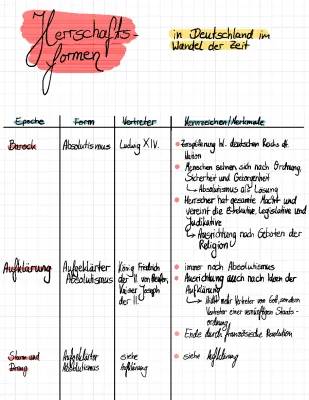 Herrschafts-
formen
in Deutschland im
Wandel der Zeit
Epoche Form Vertreter Kennzeichen/Merkmale
Barock Absolutismus Ludwig XIV.
Zersplitterung hl. deutschen Reichs dt.
Nation
Menschen sehnen sich nach Ordnung,
Sicherheit und Geborgenheit
↳ Absolutismus als Lösung
Herrscher hat gesamte Macht und
vereint die Exekutive, Legislative und
Judikative
↳ Ausrichtung nach Geboten der
Religion
Aufklärung Aufgeklärter
Absolutismus
König Friedrich
der II. von Preußen,
Kaiser Joseph
der II.
immer noch Absolutismus
Ausrichtung auch nach Ideen der
Aufklärung
↳ Nicht mehr Vertreter von Gott, sondern
Vertreter einer vernünftigen Staats-
ordnung
Ende durch französische Revolution
Sturm und
Drang
Aufgeklärter
Absolutismus
siehe
Aufklärung
siehe Aufklärung